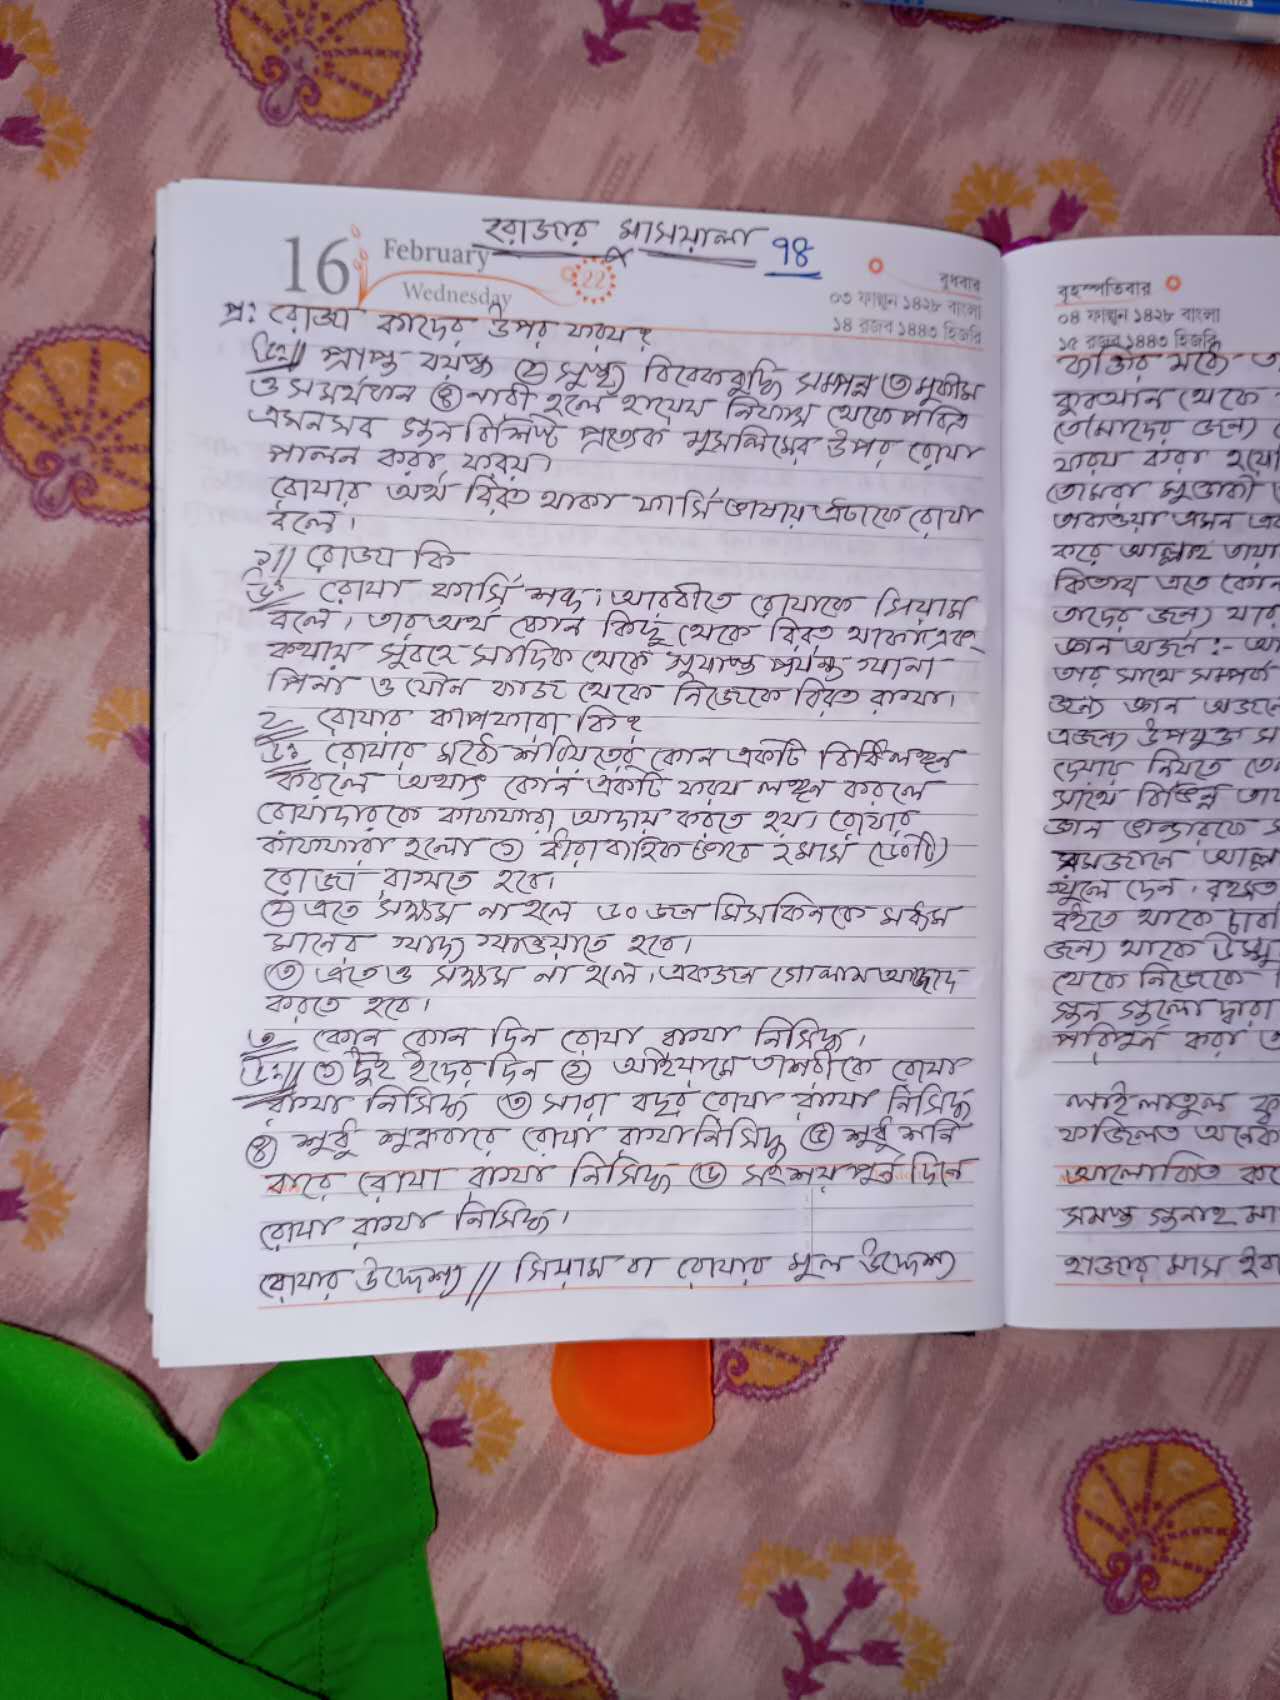 রোজার মাসয়ালা ৭৪
16 February
Wednesday
22
বুধবার
০৩ ফাল্গুন ১৪২৮ বাংলা
১৪ রজব ১৪৪৩ হিজরি
প্র: রোজা কাদের উপর ফরয?
উঃ// প্রাপ্ত বয়স্ক ② সুস্থ্য বিবেকবুদ্ধি সম্পন্ন ③ মুকীম
ও সমর্থবান ④ নারী হলে হায়েয নিফাস থেকে পবিত্র
এমনসব গুনবিশিষ্ট প্রত্যেক মুসলিমের উপর রোযা
পালন করা ফরয।
রোযার অর্থ বিরত থাকা ফার্সি ভাষায় এটাকে রোযা
বলে।
১// রোজা কি
উঃ রোযা ফার্সি শব্দ। আরবীতে রোযাকে সিয়াম
বলে। তার অর্থ কোন কিছু থেকে বিরত থাকা। এক
কথায় সুবহে সাদিক থেকে সুর্যাস্ত পর্যন্ত খানা
পিনা ও যৌন কাজ থেকে নিজেকে বিরত রাখা।
২ রোযার কাপফারা কি?
উঃ রোযার মঠে শরিয়তের কোন একটি বিধি লঙ্গন
করলে অথাৎ কোন একটি ফরয লঙ্গন করলে
রোযাদারকে কাফফারা আদায় করতে হয়। রোযার
কাফফারা হলো ① ধীরাবাহিক ভাবে ২মাস (৬০টি)
রোজা রাখতে হবে।
② এতে সক্ষম না হলে ৬০ জন মিসকিনকে মধ্যম
মানের খাদ্য খাওয়াতে হবে।
③ এতেও সক্ষম না হলে। একজন গোলাম আজাদ
করতে হবে।
৩ কোন কোন দিন রোযা রাখা নিসিদ্ধ।
উঃ// ① দুই ইদের দিন ② আইয়ামে তাশরীকে রোযা
রাখা নিসিদ্ধ ③ সারা বছর রোযা রাখা নিসিদ্ধ
④ শুধু শুক্রবারে রোযা রাখা নিসিদ্ধ ⑤ শুধু শনি
বারে রোযা রাখা নিসিদ্ধ ⑥ সংশয় পূর্ন দিনে
রোযা রাখা নিসিদ্ধ।
রোযার উদ্দেশ্য // সিয়াম বা রোযার মূল উদ্দেশ্য
বৃহস্পতিবার
০৪ ফাল্গুন ১৪২৮ বাংলা
১৫ রজব ১৪৪৩ হিজরি
কুরআন থেকে
তোমাদের জন্য
ফরয করা হয়ে
তোমরা মুত্তাকী
তাকওয়া এমন
করে আল্লাহ তায়া
কিতাব এতে কোন
তাদের জন্য যার
জ্ঞান অর্জন :- আ
তার সাথে সম্পর্ক
জন্য জ্ঞান অর্জনে
এজন্য উপযুক্ত স
দেয়ার নিয়তে তে
সাথে বিভিন্ন তা
জ্ঞান ভান্ডারকে
রমজানে আল্ল
খুলে দেন। রহমত
বইতে থাকে চারি
জন্য থাকে উন্মু
থেকে নিজেকে
গুন গুলো দ্বারা
পরিপূর্ন করা
লাইলাতুল ক্ব
ফজিলত অনেক
আলোকিত কর
সমস্ত গুনাহ মা
হাজার মাস ইবা